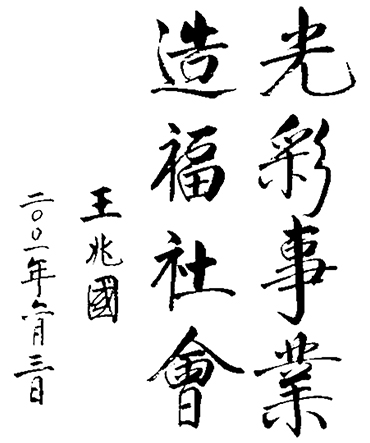 光彩事業
造福社會
王兆國
二〇〇一年六月三日